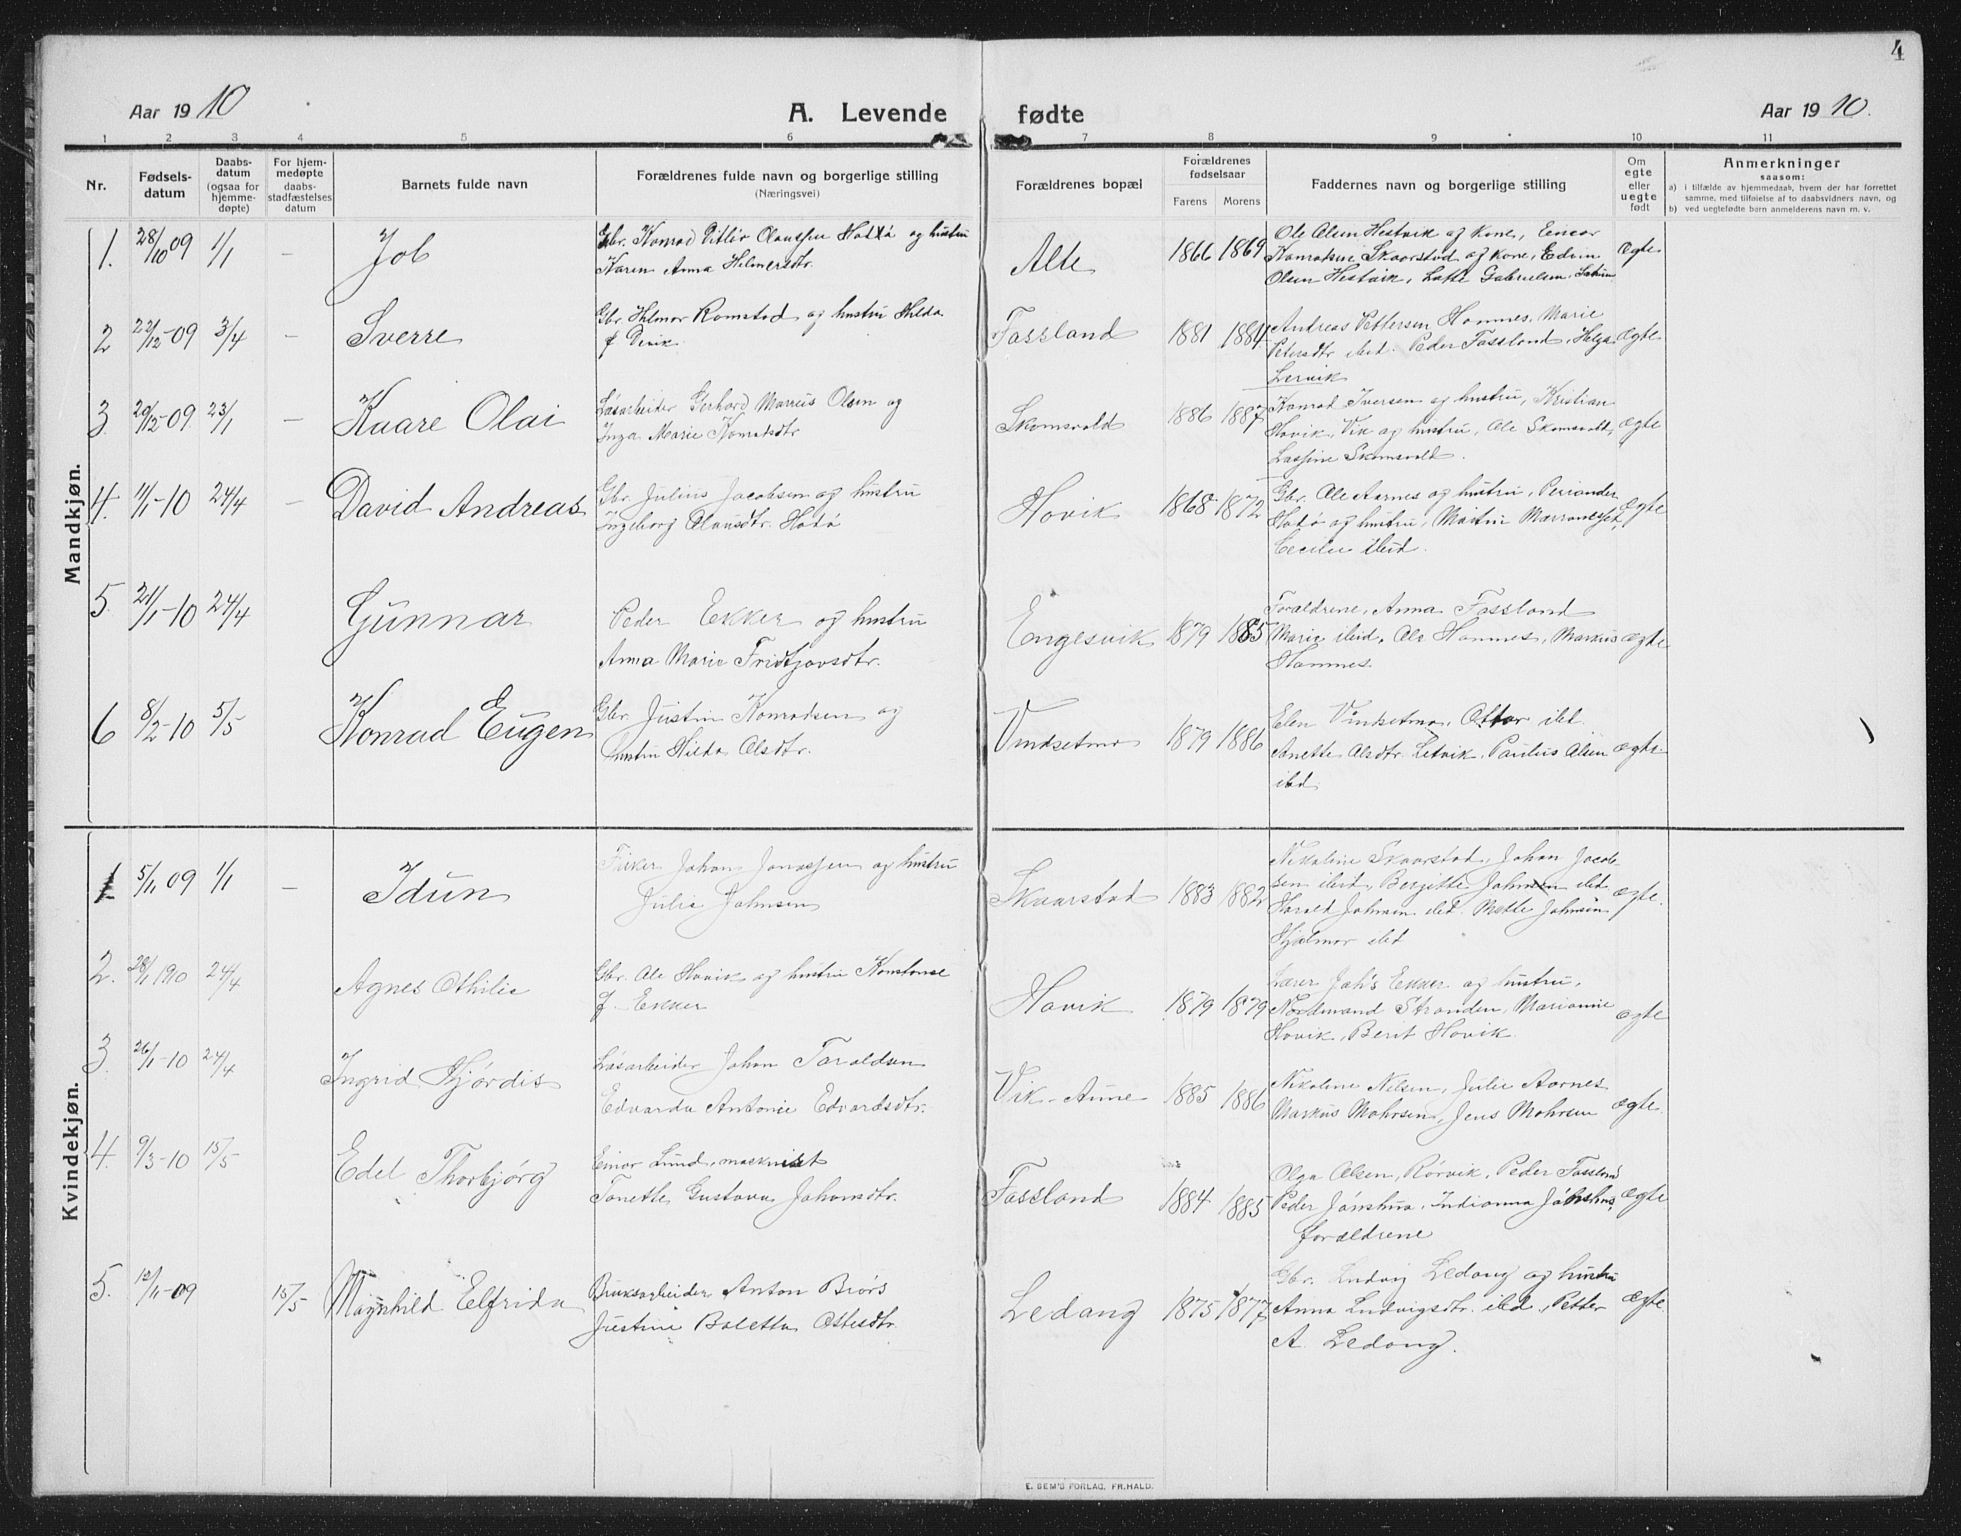 4
Aar 1910
A. Levende fødte
Aar 1910.
1 2 3 4 5 6 7 8 9 10 11
Nr.
Fødsels-
datum
Daabs-
datum
(ogsaa for
hjemme-
døpte)
For hjem-
medøpte
daabs-
stadfæstelses
datum
Barnets fulde navn
Forældrenes fulde navn og borgerlige stilling
(Næringsvei)
Forældrenes bopæl
Forældrenes
fødselsaar
Farens Morens
Faddernes navn og borgerlige stilling
Om
egte
eller
uegte
født
Anmerkninger
saasom:
a) i tilfælde av hjemmedaab, hvem der har forrettet
samme, med tilføielse af to daabsvidners navn, og
b) ved uegtefødte børn anmelderens navn m. v.
Mandkjøn.
1. 28/10 09 1/1 – Job
Gbr. Konrad Olaussen og hustru
Karen Anna Hilmersdtr.
Alte 1866 1869
Ole Olsen Hestvik og kone,
Skaarstad og kone, Edvin
Olsen Hestvik, Lotte Gabrielsen
ægte
2 22/12-09 3/4 – Sverre
Gbr. Hilmar Ramstad og hustru Hilda
f.
Fossland 1881 1884
Andreas Pettersen Hamnes, Marie
Petersdtr ibid. Peder Fossland, Helga
Lervik
ægte
3. 29/12-09 23/1 – Kaare Olai
Løsarbeider Gerhard Marius Olsen og
Inga Marie
Skomsvold 1886 1887
Konrad Iversen og hustru, Kristian
Hovik, Vik og hustru, Ole Skomsvold,
Skomsvold.
ægte
4. 11/1-10 24/4 – David Andreas
Gbr. Julius Jacobsen og hustru
Ingeborg Olausdtr. Hodø
Hovik 1868 1872
Gbr. Ole Aarnes og hustru, Periander
Hodø og hustru, Martin
Cecilie ibid.
ægte
5. 21/1-10 24/4 Gunnar
Peder Ekker og hustru
Anna Marie Fridtjovsdtr.
Engesvik 1879 1885
Forældrene, Anna Fossland
Marie ibid. Ole Hamnes, Markus
Hamnes.
ægte
6 8/2-10 5/5 Konrad Eugen
Gbr. Justin Konradsen og
hustru Hilda Olsdtr.
Vindsetmo 1879 1886
Elen Vindsetmo, Ottar ibd.
Anette Olsdtr. Setvik, Paulus Olsen
ibd.
ægte
Kvindekjøn.
1 5/11 09 1/1 – Idun
Fisker Johan Jonassen og hustru
Julie Johnsen
Skaarstad 1883 1882
Nikoline Skaarstad, Johan Jacob-
sen ibid, Bergitte Johnsen ibd
Harald Johnsen ibd. Mette Johnsen
Hjalmar ibd
ægte.
2. 28/1 1910 24/4 Agnes Othilie
Gbr. Ole Hovik og hustru Konstanse
f. Ekker
Hovik 1879 1879
Lærer Joh's Ekker og hustru,
Nordmand Stranden, Marianne
Hovik, Berit Hovik.
ægte
3. 26/1-10 24/4 Ingrid Hjørdis
Løsarbeider Johan Taraldsen
Edvarda Antonie Edvardsdtr.
Vik-Aune 1885 1886
Nikoline Nilsen, Julie Aarnes
Markus Mohrsen, Jens Mohrsen
ægte.
4. 9/3-10 15/5 Edel Thorbjørg
Einar Lund, maskinist
Tonette Gustava Johansdtr.
Fossland 1884 1885
Olga Olsen, Rørvik, Peder Fossland
Peder Jónshus, Indianna Jónshus,
forældrene
ægte
5. 12/11-09 15/5 Magnhild Elfrida
Bruksarbeider Anton Brørs
Justine Boletta Ottesdtr.
Ledang 1875 1877
Gbr. Ludvig Ledang og hustru
Anna Ludvigsdtr. ibd, Petter
A. Ledang.
ægte
E. SEM'S FORLAG, FR.HALD.